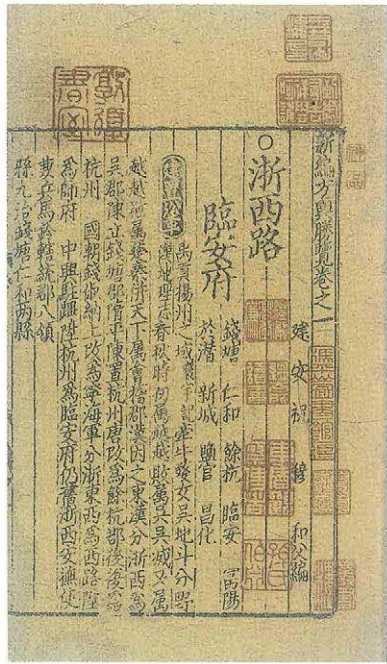 新編方輿勝覽卷之一
建安 祝 穆 和父 編
○浙西路
臨安府
錢塘 仁和 餘杭 臨安 富陽
於潜 新城 鹽官 昌化
禹貢揚州之域牽牛婺女吴地斗分野
漢地理志春秋時初属越越敗属吴吴滅又属
越越属楚秦并天下属會稽郡漢因之東漢分浙西爲
吴郡陳立錢塘郡隋平陳置杭州唐改爲餘杭郡後復爲
杭州 國朝錢俶納土改爲寧海軍分浙東西爲两路陞
爲帥府 中興駐蹕陞杭州爲臨安府仍舊浙西安撫使
兼兵馬鈐轄統郡八領
縣九治錢塘仁和两縣